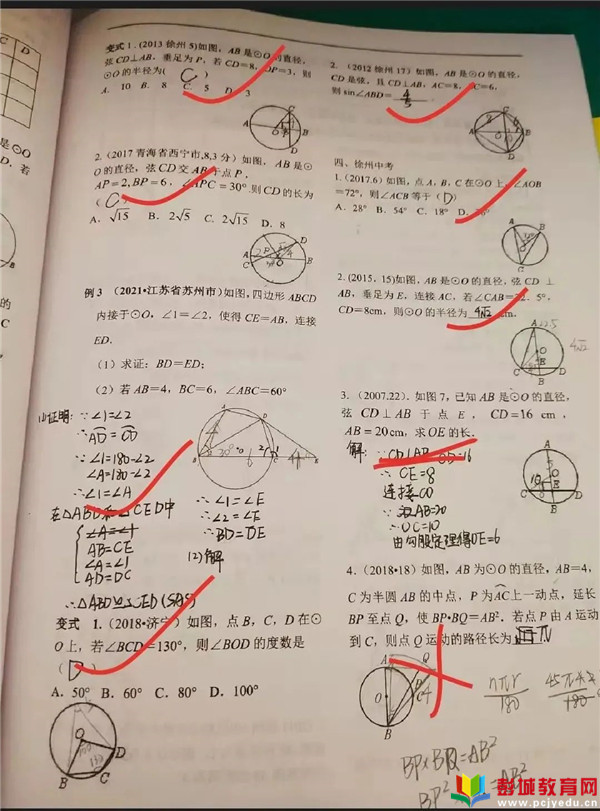 变式 1.(2013 徐州 5)如图,AB 是⊙O 的直径,
弦 CD⊥AB,垂足为 P,若 CD=8,OP=3,则
⊙O 的半径为( C )
A. 10 B. 8 C. 5 D. 3
2.(2017 青海省西宁市,8,3 分)如图,AB 是⊙
O 的直径,弦 CD 交 AB 于点 P,
AP=2,BP=6,∠APC=30°.则 CD 的长为
( C )
A. √15 B. 2√5 C. 2√15 D. 8
例 3 (2021•江苏省苏州市)如图,四边形 ABCD
内接于⊙O,∠1=∠2,使得 CE=AB,连接
ED.
(1)求证:BD=ED;
(2)若 AB=4,BC=6,∠ABC=60°
(1)证明:∵∠1=∠2
∴AD=CD
∵∠1=180-∠2
∠A=180-∠2
∴∠1=∠A
在△ABD和△CED中
∠A=∠1
AB=CE
∠A=∠1
AD=DC
∴△ABD≌△CED(SAS)
∴∠1=∠E
∴∠2=∠E
∴BD=DE
(2)解
变式 1.(2018•济宁)如图,点 B,C,D 在⊙
O 上,若∠BCD=130°,则∠BOD 的度数是
( D )
A. 50° B. 60° C. 80° D. 100°
2.(2012 徐州 17)如图,AB 是⊙O 的直径,
CD 是弦,且 CD⊥AB,AC=8,BC=6,
则 sin∠ABD= 4/5
四、徐州中考
1.(2017.6)如图,点 A,B,C 在⊙O 上,∠AOB
=72°,则∠ACB 等于( D )
A. 28° B. 54° C. 18° D.
2.(2015,15)如图,AB 是⊙O 的直径,弦 CD ⊥
AB,垂足为 E,连接 AC,若∠CAB=22. 5°,
CD=8cm,则⊙O 的半径为 4√2 cm.
22.5
4√2
3.(2007.22).如图 7,已知 AB 是⊙O 的直径,
弦 CD⊥AB 于点 E,CD=16 cm,
AB=20cm,求 OE 的长.
解:∵CD⊥AB CD=16
∴CE=8
连接CO
∵AB=20
∴OC=10
由勾股定理得OE=6
4.(2018•18)如图,AB 为⊙O 的直径,AB=4,
C 为半圆 AB 的中点,P 为AC上一动点,延长
BP 至点 Q,使 BP•BQ=AB².若点 P 由 A 运动
到 C,则点 Q 运动的路径长为 π
nπr/180
BP×BQ=AB²
BP² =AB²
彭城教育网
www.pcjyedu.cn